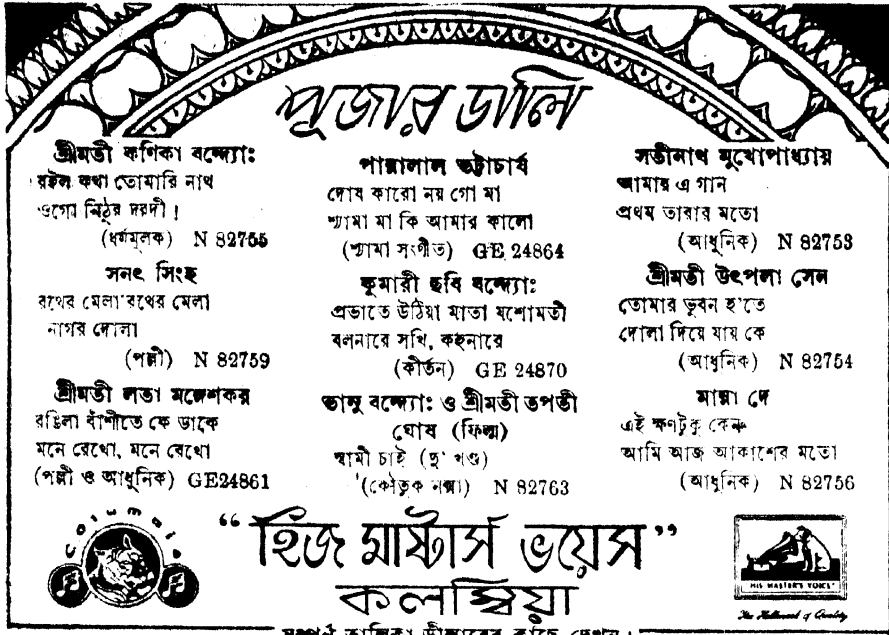 পূজার ডালি
শ্রীমতী কণিকা বন্দ্যোঃ
রইল কথা তোমারি নাথ
ওগো নিঠুর দরদী !
(ধর্মমূলক) N 82755
সনৎ সিংহ
রথের মেলা রথের মেলা
নাগর দোলা
(পল্লী) N 82759
শ্রীমতী লতা মঙ্গেশকর
রঙিলা বাঁশীতে কে ডাকে
মনে রেখো, মনে রেখো
(পল্লী ও আধুনিক) GE24861
পান্নালাল ভট্টাচার্য
দোষ কারো নয় গো মা
শ্যামা মা কি আমার কালো
(শ্যামা সংগীত) GE 24864
কুমারী ছবি বন্দ্যোঃ
প্রভাতে উঠিয়া মাতা যশোমতী
বলনারে সখি, কহনারে
(কীর্তন) GE 24870
ভানু বন্দ্যোঃ ও শ্রীমতী তপতী
ঘোষ (ফিল্ম)
স্বামী চাই (দু' খণ্ড)
(কৌতুক নক্সা) N 82763
সতীনাথ মুখোপাধ্যায়
আমার এ গান
প্রথম তারার মতো
(আধুনিক) N 82753
শ্রীমতী উৎপলা সেন
তোমার ভুবন হ'তে
দোলা দিয়ে যায় কে
(আধুনিক) N 82754
মান্না দে
এই ক্ষণটুকু কেন
আমি আজ আকাশের মতো
(আধুনিক) N 82756
Columbia
“হিজ মাষ্টার্স ভয়েস”
কলম্বিয়া
HIS MASTER'S VOICE
The Hallmark of Quality
সম্পূর্ণ তালিকা ডীলারের কাছে দেখুন।